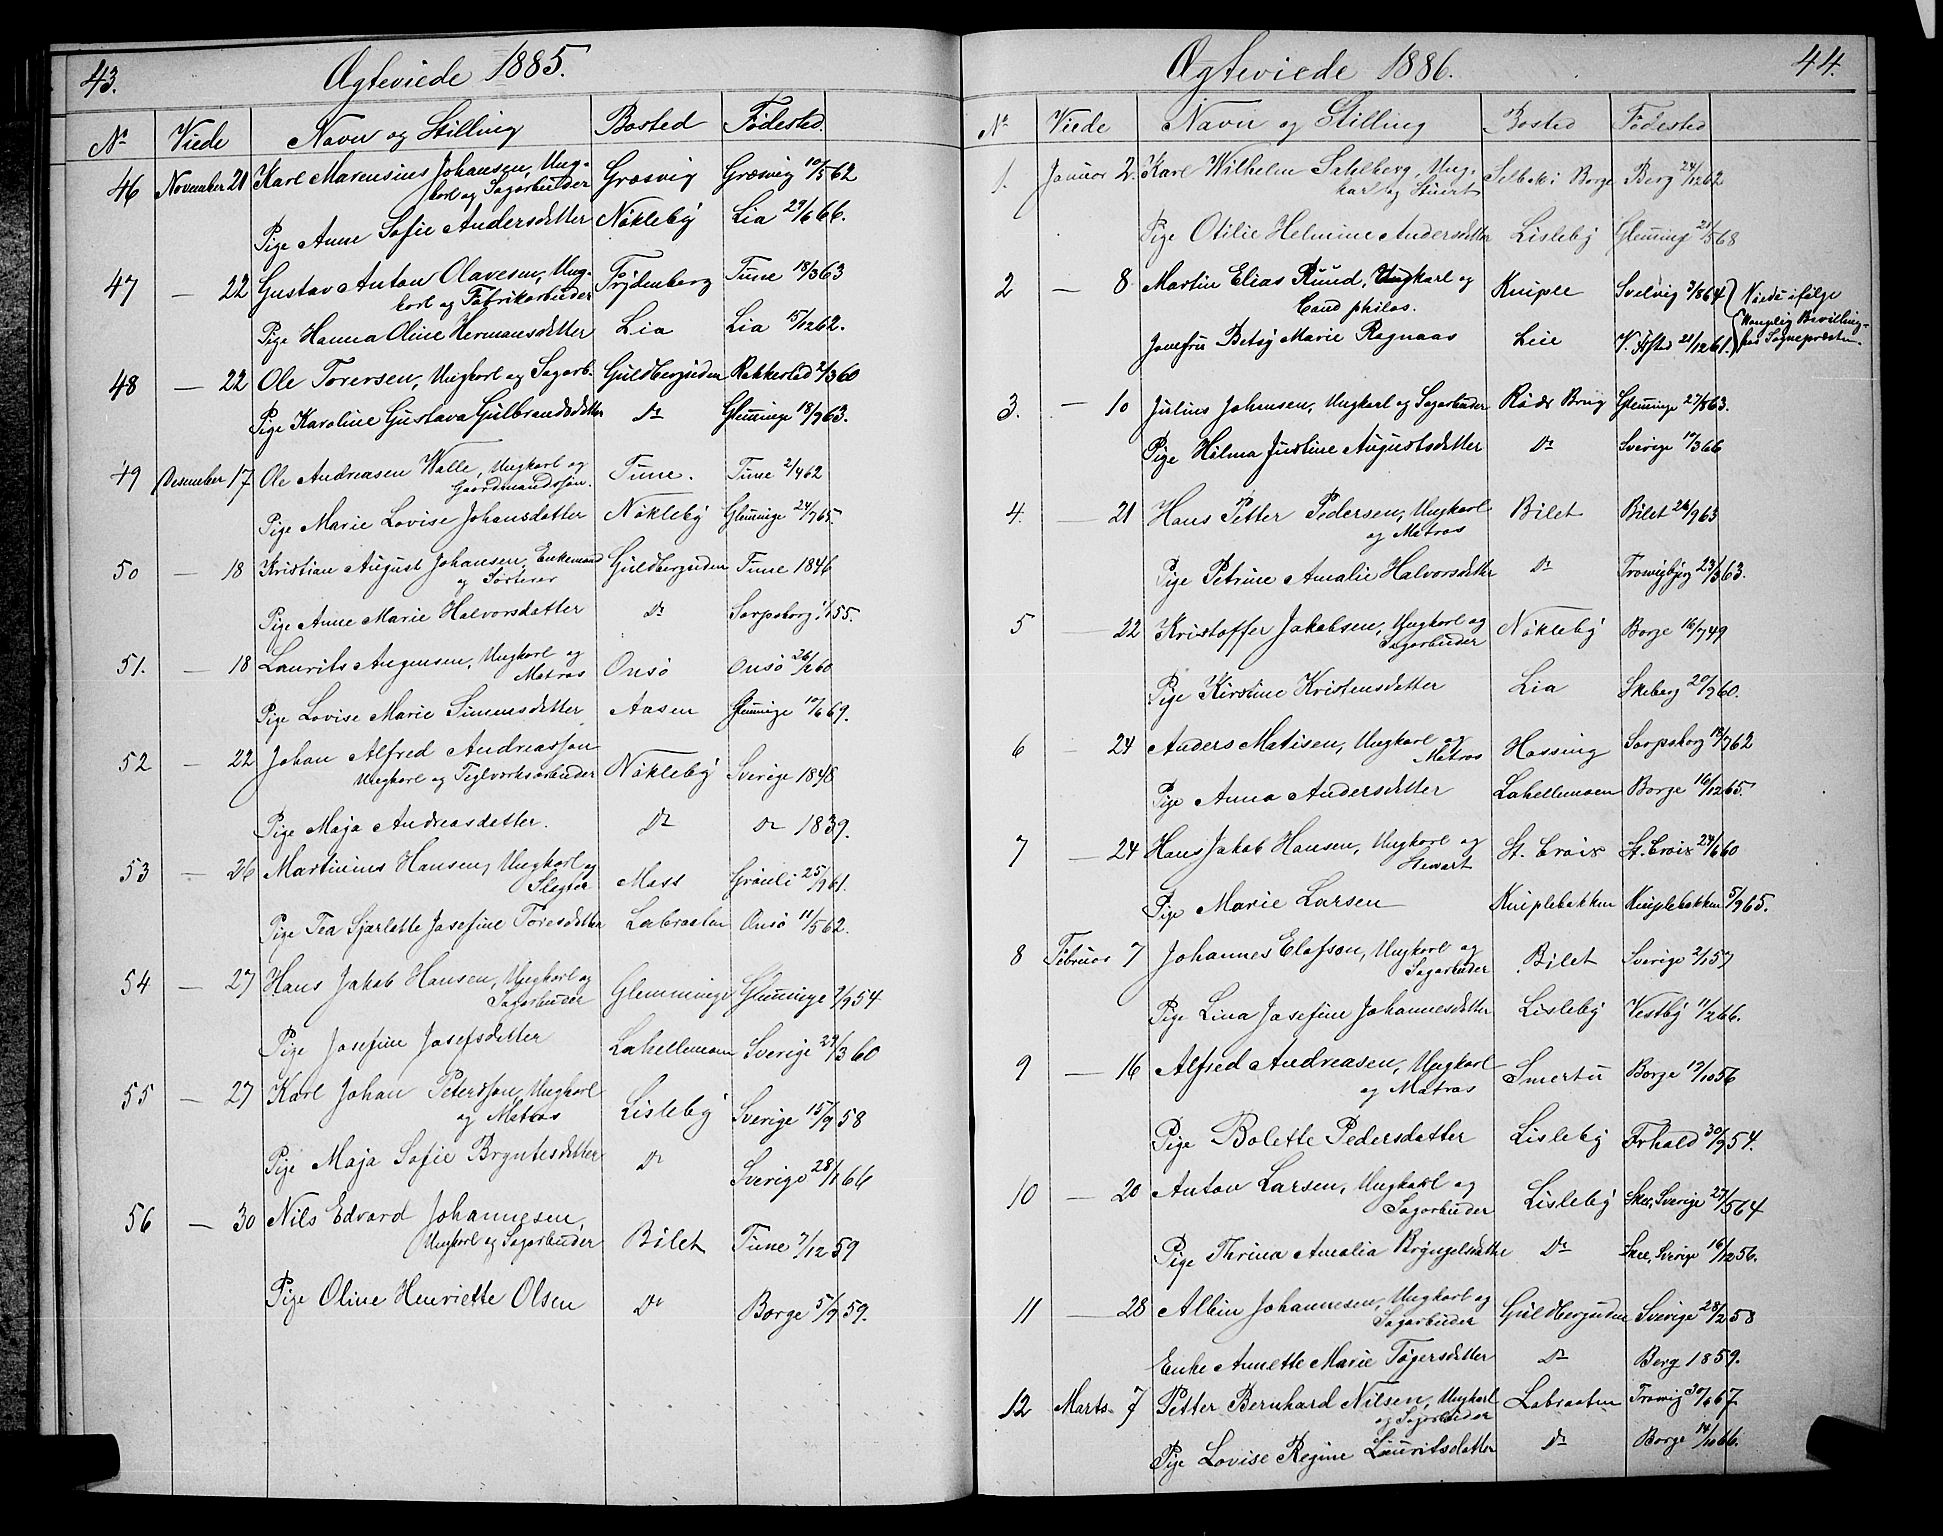 43.
Ægteviede 1885.
No Viede Navn og Stilling Bosted Fødested
46 November 21 Karl Marensius Johansen, Ung-
karl og Sagarbuder Græsvig Græsvig 10/5 62
Pige Anne Sofie Andersdatter Nökleby Lia 29/6 66.
47 — 22 Gustav Anton Olavesen, Ung-
karl og Fabrikarbuder Frydenberg Tune 18/3 63
Pige Hanna Oline Hermansdatter Lia Lia 15/12 62.
48 — 22 Ole Torersen, Ungkarl og Sagarb. Guldbergsiden Rakkestad 2/3 60
Pige Karoline Gustava Gulbrandsdatter Do Glemminge 18/9 63.
49 Desember 17 Ole Andreasen Walle, Ungkarl og
Gaardmandssøn. Tune. Tune 2/4 62
Pige Marie Lovise Johansdatter Nökleby Glemminge 24/7 65.
50 — 18 Kristian August Johansen, Enkemand
og Sorterer Guldbergsiden Tune 1846
Pige Anne Marie Halvorsdatter Do Sarpsborg 1/1 55.
51. — 18 Laurits Augensen, Ungkarl og
Matros Onsö Onsö 26/12 60
Pige Lovise Marie Simensdatter Aasen Glemminge 10/6 69.
52 — 22 Johan Alfred Andreasson
Ungkarl og Teglværksarbuder Nökleby Sverige 1848
Pige Maja Andreasdatter. Do Do 1839.
53 — 26 Martinius Hansen, Ungkarl og
Slagter Moss Grönli 25/9 61.
Pige Tea Sjarlotte Josefine Toresdatter Labraaten Onsö 11/5 62.
54 — 27 Hans Jakob Hansen, Ungkarl og
Sagarbuder Glemminge Glemminge 7/9 54
Pige Josefine Josefsdatter Lahellemoen Sverige 29/3 60
55 — 27 Karl Johan Petersson, Ungkarl
og Matros Lisleby Sverige 15/9 58
Pige Maja Sofie Bryntesdatter Do Sverige 28/1 66
56 — 30 Nils Edvard Johannesen,
Ungkarl og Sagarbuder Bilet Tune 7/12 59
Pige Oline Henriette Olsen Do Borge 5/9 59.
44.
Ægteviede 1886.
No Viede Navn og Stilling Bosted Födested
1. Januar 2. Karl Wilhelm Sahlberg, Ung-
karl og Stuert Selbak i Borge Berg 24/12 62
Pige Otilie Helmine Andersdatter Lisleby Glemminge 21/5 68
2 — 8 Martin Elias Ruud, Ungkarl og
Cand philos. Kniple Svelvig 3/8 64 Viede ifølge
Jomfru Betsy Marie Rognaas Leie V. Afsted 21/12 61. Kongelig Bevilling
hos Sognepræsten
3. — 10 Julius Johansen, Ungkarl og Sagarbuder Röds Brug Glemminge 27/8 63.
Pige Hilma Justine Augustsdatter Do Sverige 19/3 66
4. — 21 Hans Petter Pedersen, Ungkarl
og Matros Bilet Bilet 26/9 63
Pige Petrine Amalie Halvorsdatter Do 23/3 63.
5 — 22 Kristoffer Jakobsen, Ungkarl og
Sagarbuder Nökleby Borge 16/7 49
Pige Kirstine Kristensdatter Lia Skeberg 20/7 60.
6 — 24 Anders Matisen, Ungkarl og
Matros Hassing Sarpsborg 19/7 62
Pige Anna Andersdatter Lahellemoen Borge 16/12 65.
7 — 24 Hans Jakob Hansen, Ungkarl og
Stewart St. Croix St. Croix 24/6 60
Pige Marie Larsen Kniplebakken Kniplebakken 5/9 65.
8 Februar 7 Johannes Elofson, Ungkarl og
Sagarbuder Bilet Sverige 2/1 57
Pige Lina Josefine Johannesdatter Lisleby Vestby 11/2 66.
9 — 16 Alfred Andreasen, Ungkarl
og Matros Smertu Borge 19/10 56
Pige Bolette Pedersdatter Lisleby Frhald 30/9 54.
10 — 20 Anton Larsen, Ungkarl og
Sagarbuder Lisleby Skee, Sverige 27/5 64
Pige Thrina Amalia Bryngelsdatter Do Skee, Sverige 16/12 56.
11 — 28 Albin Johannesen, Ungkarl og
Sagarbuder Guldbergsiden Sverige 28/2 58
Enke Annette Marie Tögersdatter Do Berg 1859.
12 Marts 7 Petter Bernhard Nilsen, Ungkarl
og Sagarbuder Labraaten Tromig 30/6 67
Pige Lovise Regine Lauritsdatter Do Borge 14/10 66.